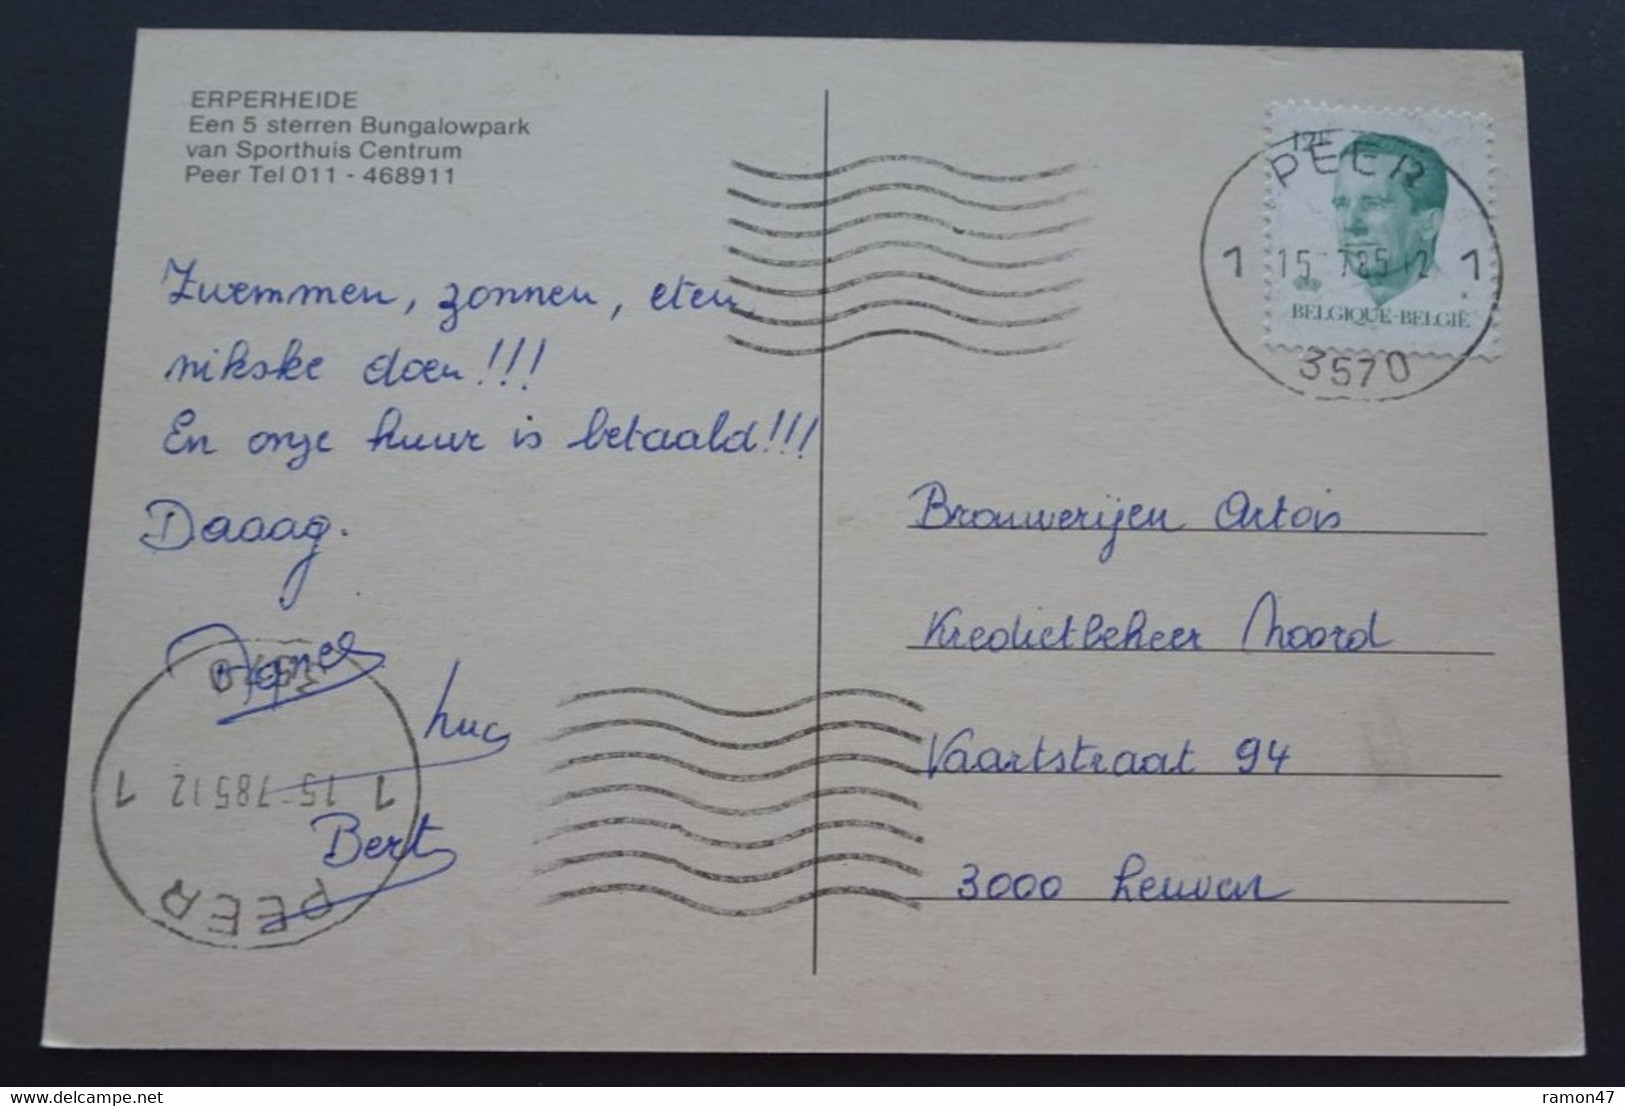 ERPERHEIDE
Een 5 sterren Bungalowpark
van Sporthuis Centrum
Peer Tel 011 - 468911
Zwemmen, zonnen, eten,
nikske doen!!!
En onze huur is betaald!!!
Daaag.
Agnes
Luc
Bert
12F
BELGIQUE-BELGIË
PEER
1 15-7 85 12 1
3570
Brouwerijen Artois
Kredietbeheer Noord
Vaartstraat 94
3000 Leuven
3570
1 15-7 85 12 1
PEER
www.delcampe.net
ramon47